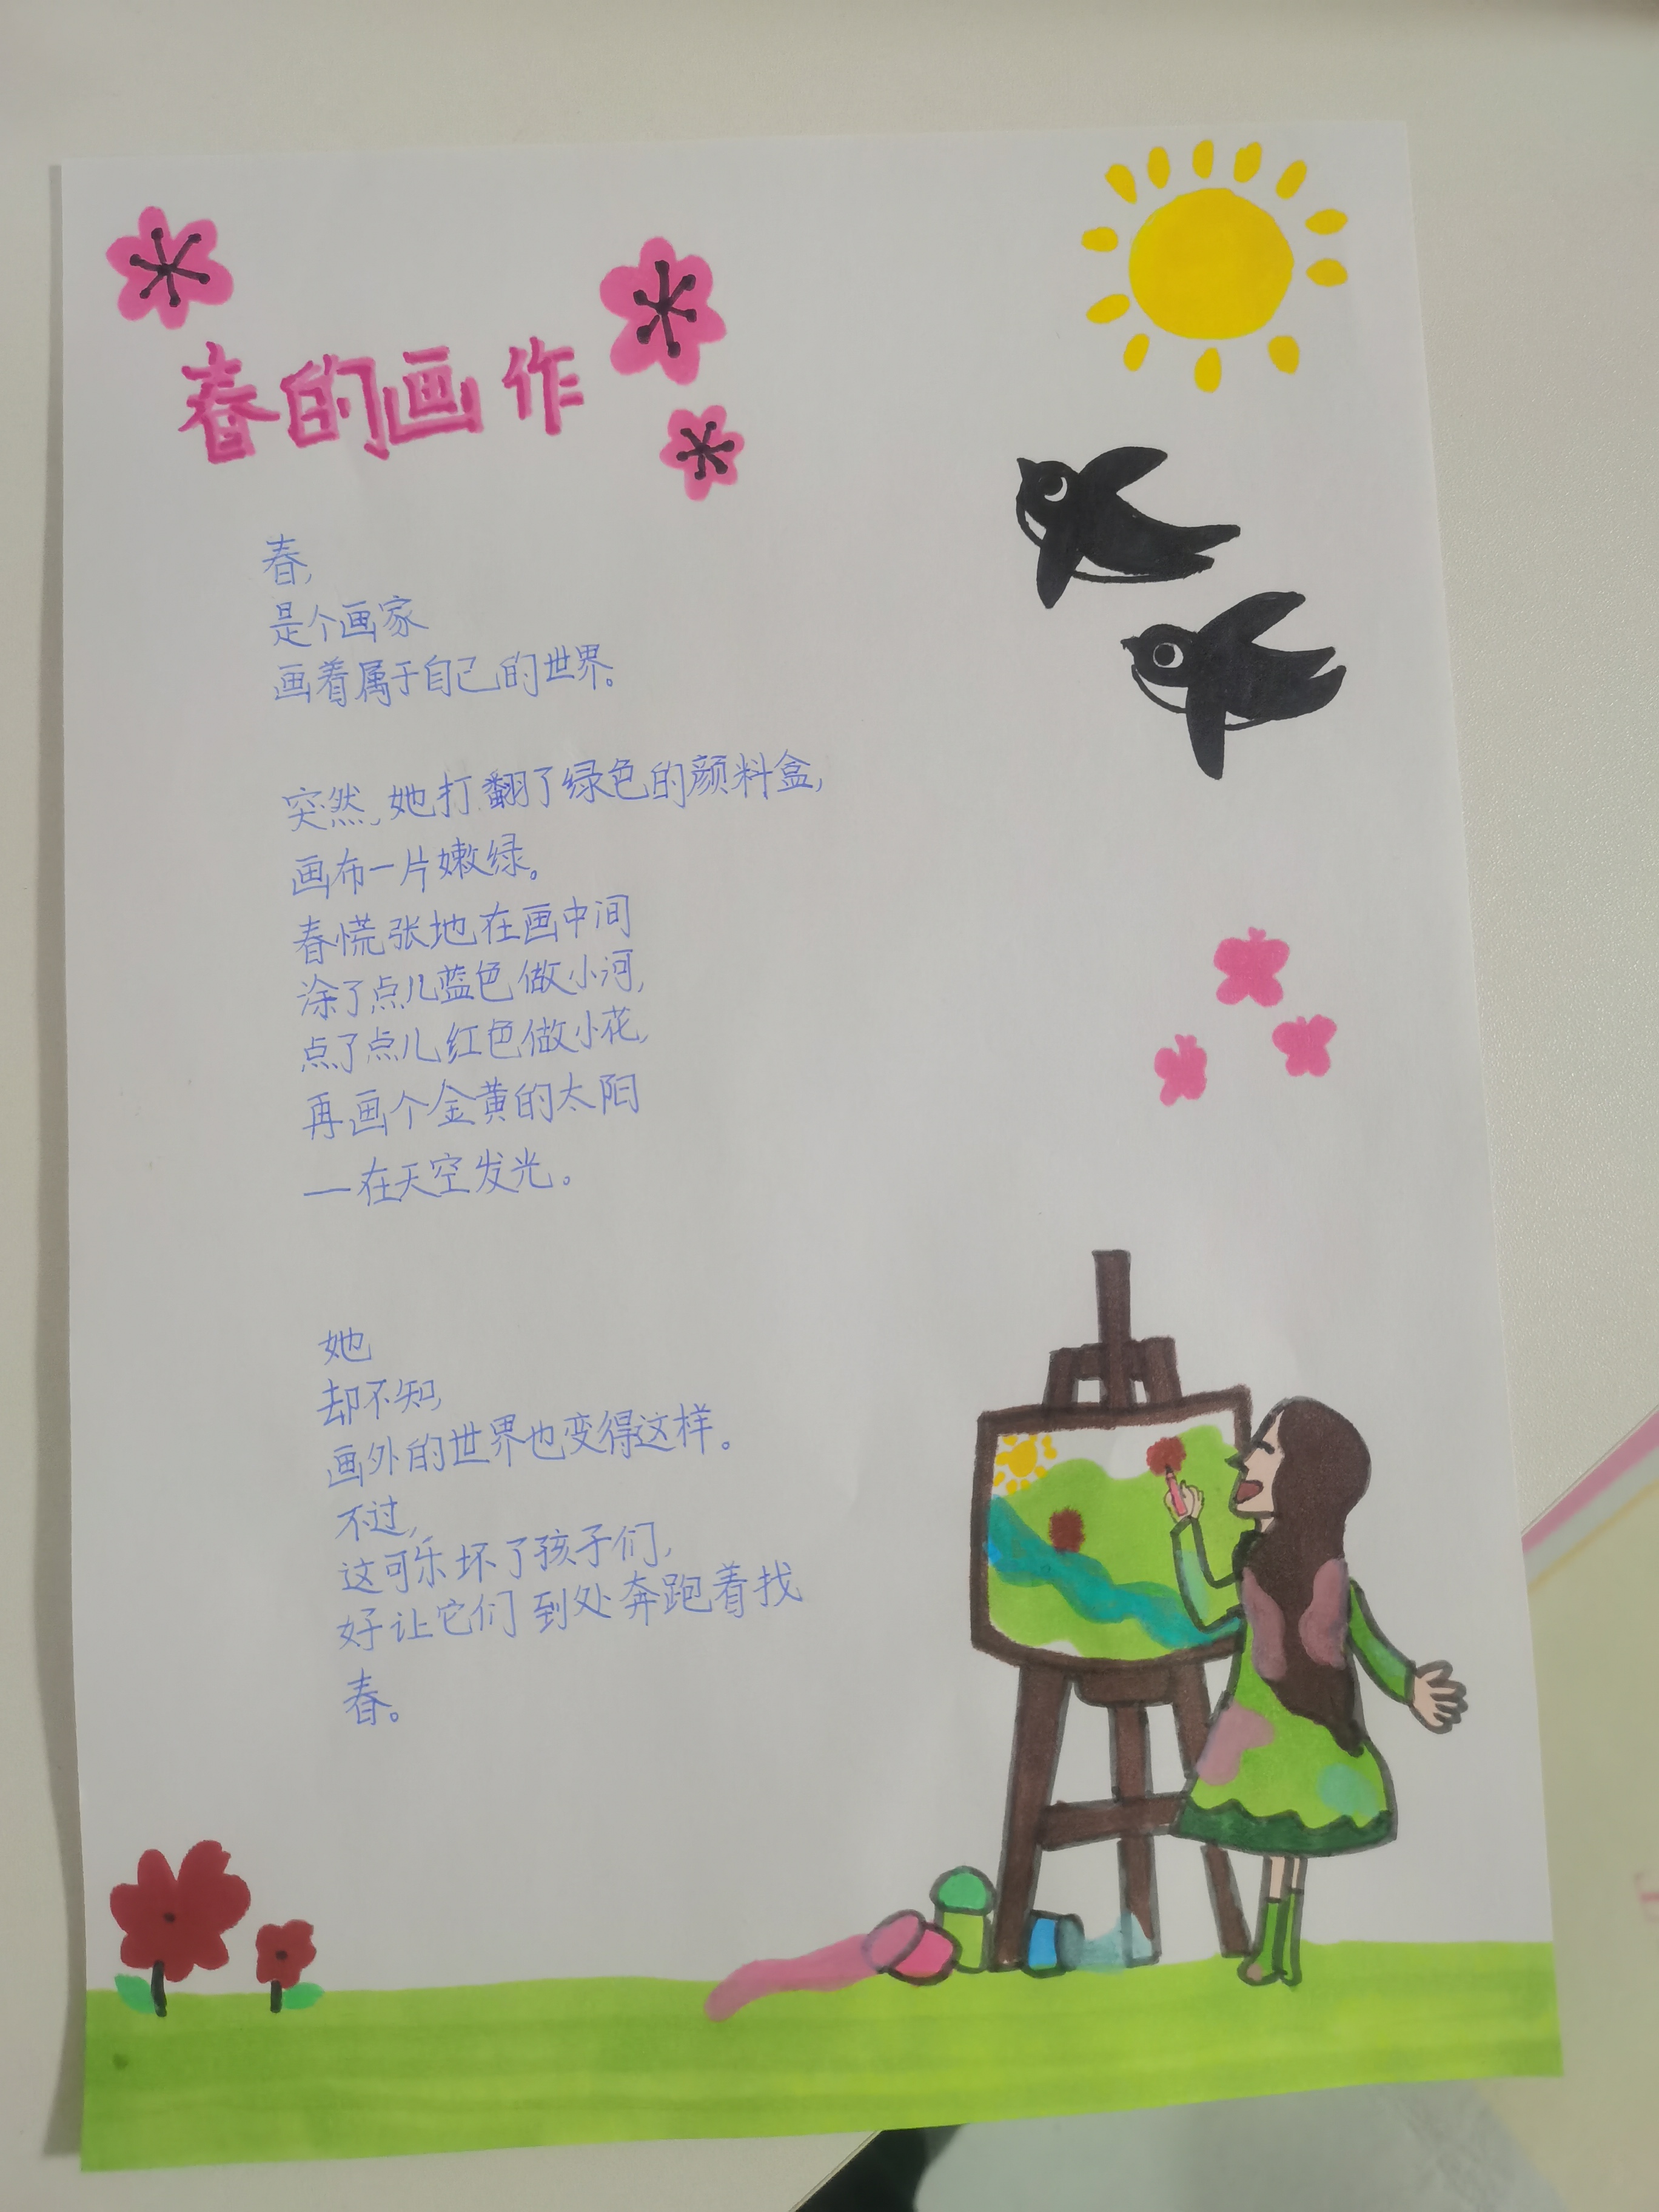 春的画作
春,
是个画家
画着属于自己的世界。
突然,她打翻了绿色的颜料盒,
画布一片嫩绿。
春慌张地在画中间
涂了点儿蓝色做小河,
点了点儿红色做小花,
再画个金黄的太阳
—在天空发光。
她
却不知,
画外的世界也变得这样。
不过,
这可乐坏了孩子们,
好让它们到处奔跑着找
春。